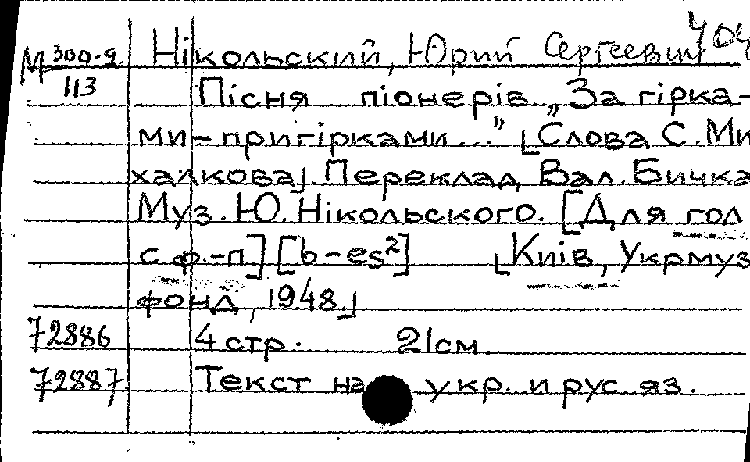 М 300-9 Нікольский, Юрий Сергеевич 404
113 Пісня піонерів „За гірка-
ми-пригірками..." [Слова С. Ми
халкова]. Переклад Вал. Бичка
Муз. Ю. Нікольского. [Для гол
с ф.-п.] [b-es²] [Киів, Укрмуз
фонд, 1948.]
72886 4 стр. 21см.
72887 Текст на укр. и рус яз.